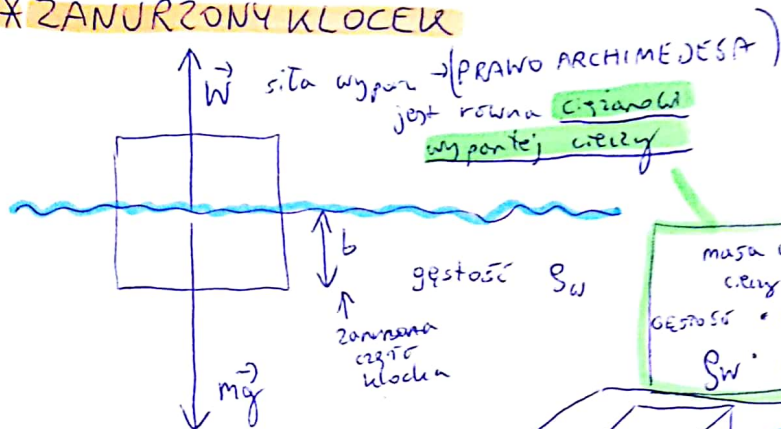 * ZANURZONY KLOCEK
W siła wypor → (PRAWO ARCHIMEDESA)
jest równa ciężarowi
wypartej cieczy
b
gęstość ρw
zanurzona
część
klocka
mg
masa
cieczy
GĘSTOŚĆ ·
ρw ·